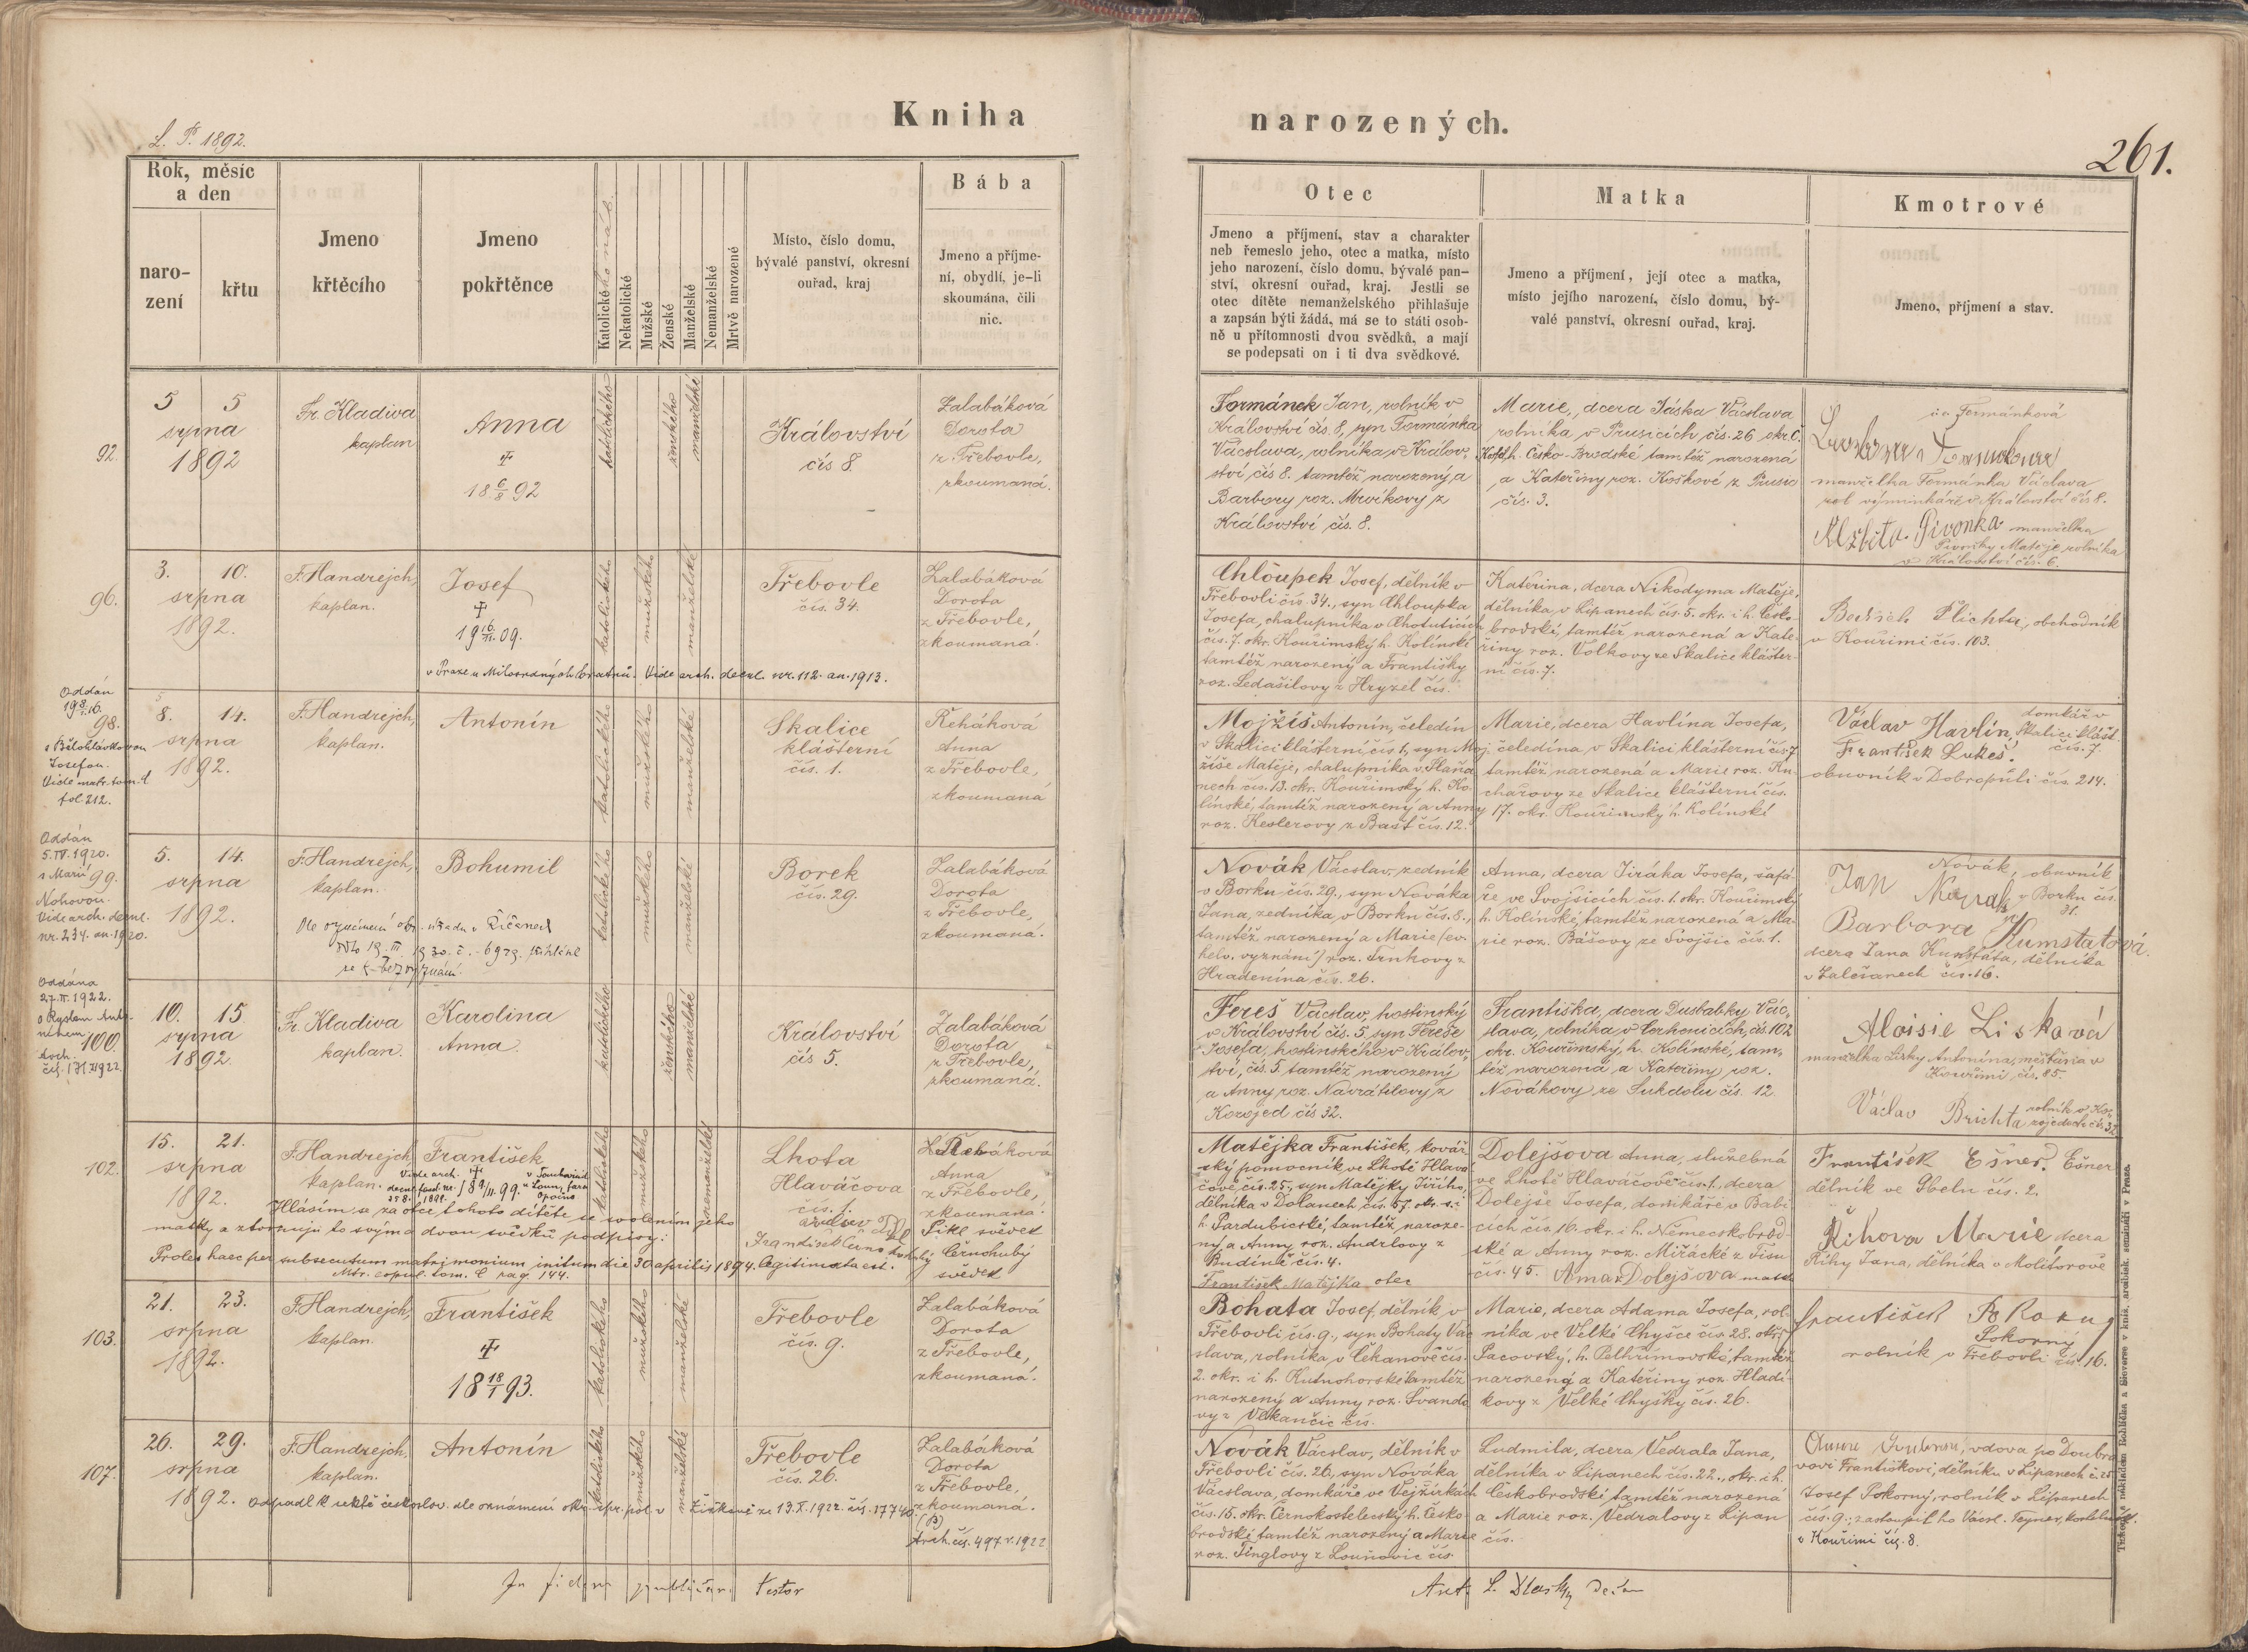 L. P. 1892.
Kniha narozených.
261.
Rok, měsíc
a den
naro-
zení
křtu
Jmeno
křtěcího
Jmeno
pokřtěnce
Katolické
Nekatolické
Mužské
Ženské
Manželské
Nemanželské
Mrtvě narozené
Místo, číslo domu,
bývalé panství, okresní
ouřad, kraj
Bába
Jmeno a příjme-
ní, obydlí, je-li
skoumána, čili
nic.
Otec
Jmeno a příjmení, stav a charakter
neb řemeslo jeho, otec a matka, místo
jeho narození, číslo domu, bývalé pan-
ství, okresní ouřad, kraj. Jestli se
otec dítěte nemanželského přihlašuje
a zapsán býti žádá, má se to státi osob-
ně u přítomnosti dvou svědků, a mají
se podepsati on i ti dva svědkové.
Matka
Jmeno a příjmení, její otec a matka,
místo jejího narození, číslo domu, bý-
valé panství, okresní ouřad, kraj.
Kmotrové
Jmeno, příjmení a stav.
92.
5 5
srpna
1892
Fr. Kladiva
kaplan
Anna
18 6/8 92
katolického
ženského
manželské
Království
čís 8.
Zalabáková
Dorota
z Třebovle,
zkoumaná.
Formánek Jan, rolník v
Království čís. 8, syn Formánka
Václava, rolníka v Králov-
ství čís 8. tamtéž narozený a
Barbory roz. Mrvíkovy z
Království čís. 8.
Marie, dcera Jáska Václava
rolníka v Prusicích čís. 26 okr. Č.
Kostel. h. Česko-Brodské tamtéž narozená
a Kateřiny roz. Koškové z Prusic
čís. 3.
Formánková
manželka Formánka Václava
výminkáře v Království čís 8.
Alžběta Pivonka manželka
Pivoňky Matěje rolníka
v Království čís. 6.
96.
3. 10.
srpna
1892.
F. Handrejch,
kaplan.
Josef
19 16/11. 09.
v Praze u Milosrdných bratrů. Vide arch. decal. nr. 112. an. 1913.
katolického
mužského
manželské
Třebovle
čís. 34.
Zalabáková
Dorota
z Třebovle,
zkoumaná.
Chloupek Josef, dělník v
Třebovli čís. 34., syn Chloupka
Josefa, chalupníka v Chotuticích
čís. 7. okr. Kouřimský h. Kolínské
tamtéž narozený a Františky
roz. Ledašilovy z Hryzel čís.
Kateřina, dcera Nikodyma Matěje,
dělníka v Lipanech čís. 5. okr. i h. Česko-
brodské, tamtéž narozená a Kate-
řiny roz. Volkovy ze Skalice klášter-
ní čís. 7.
Bedřich Plichta, obchodník
v Kouřimi čís. 103.
Oddán
98.
s Bělohlávkovou
Josefou.
Vide matr. tom. d
fol. 212.
8. 14.
srpna
1892.
F. Handrejch,
kaplan.
Antonín
katolického
mužského
manželské
Skalice
klášterní
čís. 1.
Řeháková
Anna
z Třebovle,
zkoumaná
Mojžíš Antonín, čeledín
v Skalici klášterní čís 1, syn Moj-
žíše Matěje, chalupníka v Plaňa-
nech čís. 13. okr. Kouřimský h. Ko-
línské, tamtéž narozený a Anny
roz. Keslerovy z Bašt čís. 12.
Marie, dcera Havlína Josefa,
čeledína v Skalici klášterní čís. 7
tamtéž narozená a Marie roz. Ku-
chařovy ze Skalice klášterní čís.
17. okr. Kouřimský h. Kolínské
Václav Havlín, domkář v
Skalici klášt.
čís. 7.
František Lukeš.
obuvník v Dobropůli čís. 214.
Oddán
5. IV. 1920.
s Marií
99.
Nohovou.
Vide arch. decal.
nr. 234. an. 1920.
5. 14.
srpna
1892.
F. Handrejch,
kaplan.
Bohumil
katolického
mužského
manželské
Borek
čís. 29.
Zalabáková
Dorota
z Třebovle,
zkoumaná.
Novák Václav, zedník
v Borku čís. 29., syn Nováka
Jana, zedníka v Borku čís. 8.,
tamtéž narozený a Marie (ev.
helv. vyznání) roz. Trnkovy z
Hradenína čís. 26.
Anna, dcera Jiráka Josefa, šafá-
ře ve Svojšicích čís. 1. okr. Kouřimský
h. Kolínské, tamtéž narozená a Ma-
rie roz. Bášovy ze Svojšic čís. 1.
Jan Novák
Novák, obuvník
v Borku čís.
31.
Barbora Kumstatová.
dcera Jana Kumstáta, dělníka
v Zalešanech čís. 16.
Oddána
27. II. 1922.
100.
10. 15
srpna
1892.
Fr. Kladiva
kaplan.
Karolina
Anna
katolického
ženského
manželské
Království
čís 5.
Zalabáková
Dorota
z Třebovle,
zkoumaná.
Fereš Václav, hostinský
v Království čís. 5, syn Fereše
Josefa, hostinského v Králov-
tví, čís. 5 tamtéž narozený
a Anny roz. Navrátilovy z
Kozojed čís 32.
Františka, dcera Dusbabky Vác-
slava, rolníka v Cerhenicích, čís. 102
okr. Kouřimský, h. Kolínské, tam-
též narozená a Kateřiny roz.
Novákovy ze Sukdolu čís. 12.
Aloisie Lisková
manželka Lisky Antonína, měšťana v
Kouřimi čís. 85.
Václav Brichta rolník v Ko-
zojedech čís. 32
102.
15. 21.
srpna
1892.
F. Handrejch
kaplan.
František
katolického
mužského
nemanželské
Lhota
Hlaváčova
čís. 1.
Anna
z Třebovle,
zkoumaná.
Hlásím se za otce tohoto dítěte se svolením jeho
matky a ztvrzuji to svýma dvou svědků podpisy:
Proles haec per subsecutum matrimonium initum die 30 aprilis 1894. legitimata est.
Mtr. copul. tom. C pag. 144.
svědek
Matějka František, kovář-
ský pomocník ve Lhotě Hlavá-
čově čís. 25, syn Matějky Jiřího,
dělníka v Dolanech čís. 57. okr. i
h. Pardubické, tamtéž naroze-
ný a Anny roz. Andrlovy z
Budína čís. 4.
František Matějka otec
Dolejšova Anna, služebná
ve Lhotě Hlaváčově čís. 1, dcera
Dolejše Josefa, domkáře v Babi-
cích čís. 16. okr. i h. Německobrod-
ské a Anny roz. Mižácké z Tisu
čís. 45. Anna Dolejšova matka
František Ešner. Ešner
dělník ve Gbelu čís. 2.
Řihova Marie, dcera
Říhy Jana, dělníka v Molitorově
103.
21. 23.
srpna
1892.
F. Handrejch,
kaplan.
František
18 18/1 93.
katolického
mužského
manželské
Třebovle
čís. 9.
Zalabáková
Dorota
z Třebovle,
zkoumaná.
Bohata Josef, dělník v
Třebovli čís. 9., syn Bohaty Vác-
slava, rolníka v Cekanově čís.
2. okr. i h. Kutnohorské tamtéž
narozený a Anny roz. Švando-
vy z Velkančic čís.
Marie, dcera Adama Josefa, rol-
níka ve Velké Chyšce čís. 28. okr.
Pacovský, h. Pelhřimovské, tamtéž
narozená a Kateřiny roz. Hladí-
kovy z Velké Chyšky čís. 26.
František Pokorný
Pokorný
rolník v Třebovli čís. 16.
107.
26. 29.
srpna
1892.
F. Handrejch,
kaplan.
Antonín
katolického
mužského
manželské
Třebovle
čís. 26.
Zalabáková
Dorota
z Třebovle,
zkoumaná.
Odpadl k sektě českoslov. dle oznámení okr. spr. pol. v Žižkově ze 13. X. 1922. čís. 17740.
Arch. čís. 497. r. 1922
Novák Václav, dělník v
Třebovli čís. 26, syn Nováka
Václava, domkáře ve Vejžirkách
čís. 15. okr. Černokostelecký h. Česko-
brodské tamtéž narozený a Marie
roz. Tinglovy z Louňovic čís.
Ludmila, dcera Vedrala Jana,
dělníka v Lipanech čís. 22., okr. i h.
Českobrodské tamtéž narozená
a Marie roz. Vedralovy z Lipan
čís.
vdova po Doubra-
vovi Františkovi, dělníku v Lipanech č. 25
Josef Pokorný, rolník v Lipanech
čís. 9.; zastoupil ho Václ.
v Kouřimi čís. 8.
In fidem publicam
Ant. L. Dlask, děkan